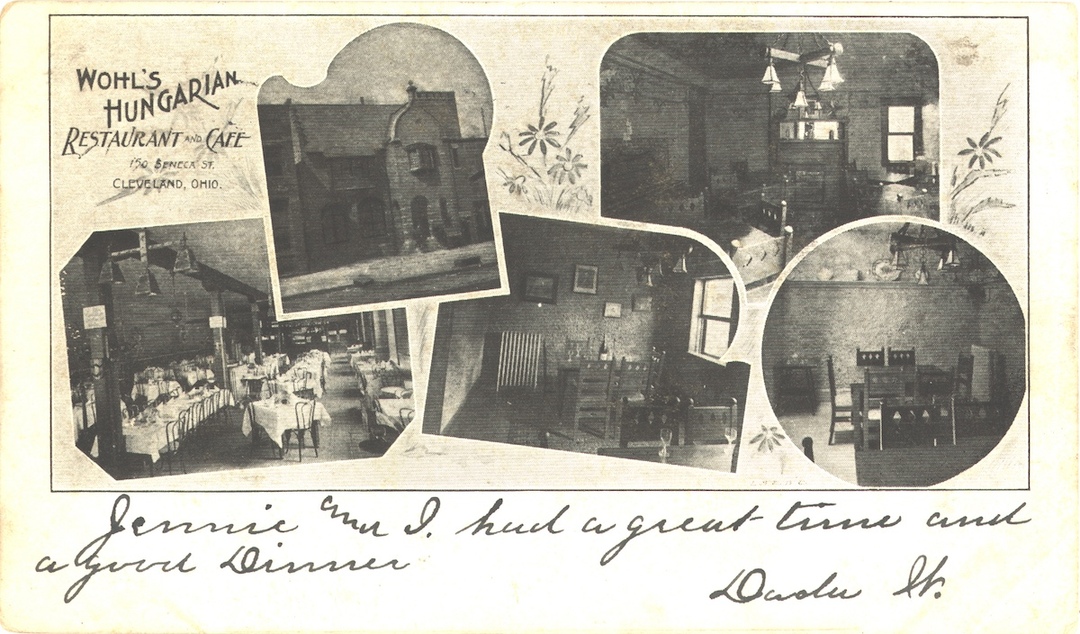 WOHL'S
HUNGARIAN
RESTAURANT AND CAFÉ
150 SENECA ST.
CLEVELAND, OHIO.
Jennie and I. had a great time and
a good Dinner